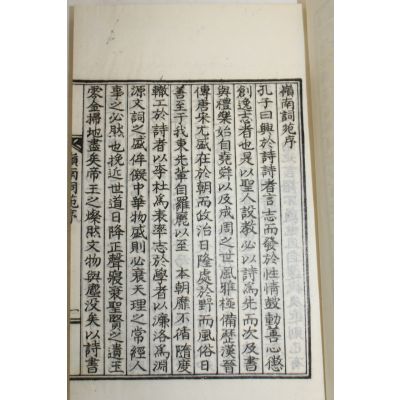 嶺南詞苑序
孔子曰興於詩詩者言志而發於性情鼓動善心懲
創逸志者也是以聖人設教必以詩爲先而次及書
與禮樂始自堯舜以及成周之世風雅極備歷漢晉
傳唐宋尤盛在於朝而政治日隆處於野而風俗日
善至于我東先軰自羅麗以至 本朝靡不循隨度
轍工於詩者以李杜爲表率志於學者以濂洛爲淵
源文詞之盛侔儗中華物盛則必衰天理之常經人
事之必然也挽近世道日降正聲寢衰聖賢之遺玉
零金掃地盡矣帝王之燦然文物與塵没矣以詩書
嶺南詞苑序 一